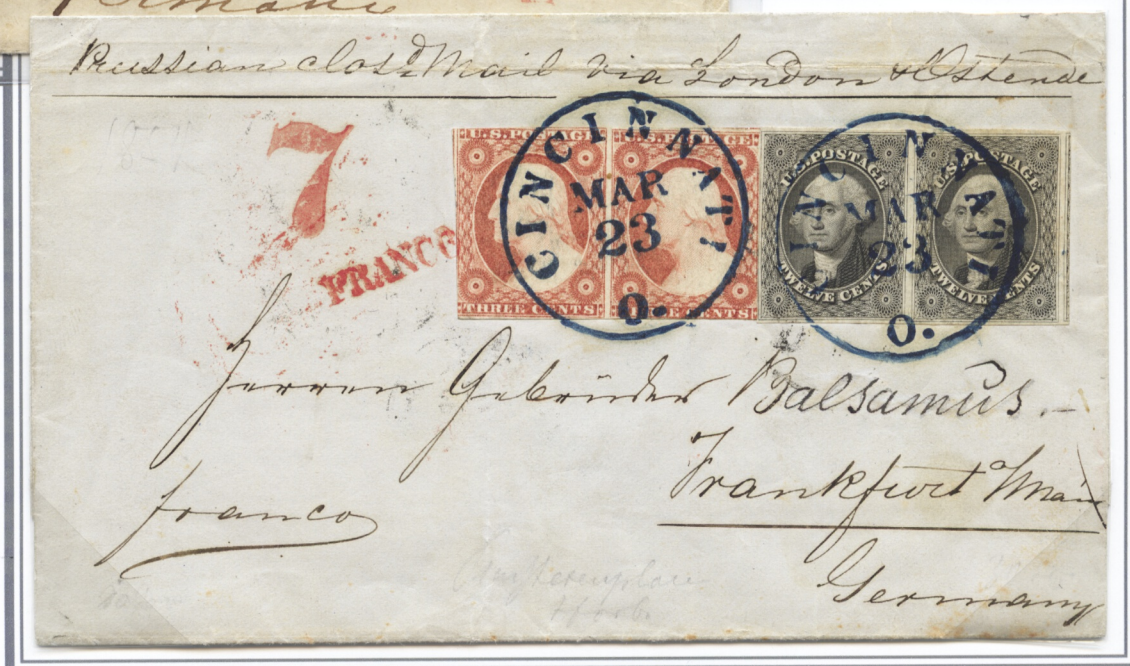 Prussian closd Mail via London & Ostende
7
FRANCO
U.S. POSTAGE
THREE CENTS
U.S. POSTAGE
CENTS
CINCINNATI
MAR
23
O.
U.S. POSTAGE
TWELVE CENTS
U.S. POSTAGE
TWELVE CENTS
CINCINNATI
MAR
23
O.
Herren Gebrüder Balsamus.
Frankfurt a/Main
franco
Germany